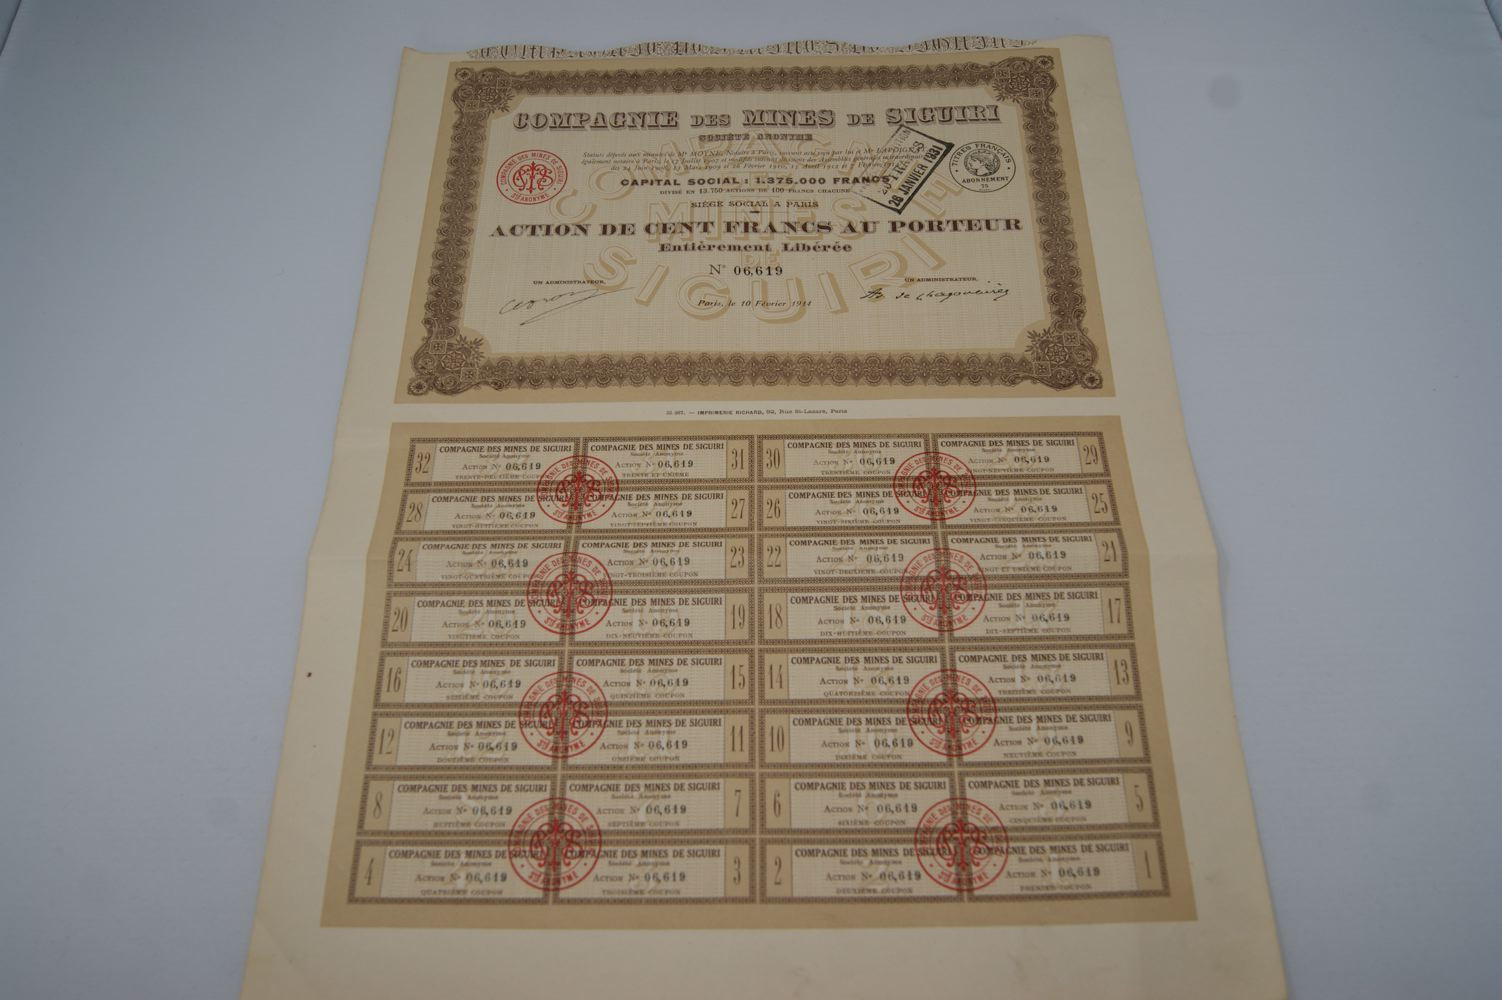 COMPAGNIE DES MINES DE SIGUIRI
SOCIÉTÉ ANONYME
Statuts déposés aux minutes de Me MOYNE, Notaire à Paris, suivant acte reçu par lui et Me LAPOIGNA
également notaire à Paris, le 17 Juillet 1907 et modifiés suivant décisions des Assemblées générales extraordinaires
des 24 Juin 1908, 13 Mars 1909 et 26 Février 1910, 13 Août 1912 et 7 Février
CAPITAL SOCIAL : 1.375.000 FRANCS
DIVISÉ EN 13.750 ACTIONS DE 100 FRANCS CHACUNE
SIÈGE SOCIAL A PARIS
ACTION DE CENT FRANCS AU PORTEUR
Entièrement Libérée
N° 06,619
UN ADMINISTRATEUR,
UN ADMINISTRATEUR,
Paris, le 10 Février 1914
COMPAGNIE DES MINES DE SIGUIRI
COMPAGNIE DES MINES DE SIGUIRI
Sté ANONYME
28 JANVIER 1931
TITRES FRANÇAIS
ABONNEMENT
75
IMPRIMERIE RICHARD, 92, Rue St-Lazare, Paris
32 COMPAGNIE DES MINES DE SIGUIRI Société Anonyme ACTION N° 06,619 TRENTE-DEUXIÈME COUPON
31 COMPAGNIE DES MINES DE SIGUIRI Société Anonyme ACTION N° 06,619 TRENTE ET UNIÈME
30 COMPAGNIE DES MINES DE SIGUIRI Société Anonyme ACTION N° 06,619 TRENTIÈME COUPON
29 COMPAGNIE DES MINES DE SIGUIRI Société Anonyme ACTION N° 06,619 VINGT-NEUVIÈME COUPON
28 COMPAGNIE DES MINES DE SIGUIRI Société Anonyme ACTION N° 06,619 VINGT-HUITIÈME COUPON
27 COMPAGNIE DES MINES DE SIGUIRI Société Anonyme ACTION N° 06,619 VINGT-SEPTIÈME COUPON
26 COMPAGNIE DES MINES DE SIGUIRI Société Anonyme ACTION N° 06,619 VINGT-SIXIÈME COUPON
25 COMPAGNIE DES MINES DE SIGUIRI Société Anonyme ACTION N° 06,619 VINGT-CINQUIÈME COUPON
24 COMPAGNIE DES MINES DE SIGUIRI Société Anonyme ACTION N° 06,619 VINGT-QUATRIÈME COUPON
23 COMPAGNIE DES MINES DE SIGUIRI Société Anonyme ACTION N° 06,619 VINGT-TROISIÈME COUPON
22 COMPAGNIE DES MINES DE SIGUIRI Société Anonyme ACTION N° 06,619 VINGT-DEUXIÈME COUPON
21 COMPAGNIE DES MINES DE SIGUIRI Société Anonyme ACTION N° 06,619 VINGT ET UNIÈME COUPON
20 COMPAGNIE DES MINES DE SIGUIRI Société Anonyme ACTION N° 06,619 VINGTIÈME COUPON
19 COMPAGNIE DES MINES DE SIGUIRI Société Anonyme ACTION N° 06,619 DIX-NEUVIÈME COUPON
18 COMPAGNIE DES MINES DE SIGUIRI Société Anonyme ACTION N° 06,619 DIX-HUITIÈME COUPON
17 COMPAGNIE DES MINES DE SIGUIRI Société Anonyme ACTION N° 06,619 DIX-SEPTIÈME COUPON
16 COMPAGNIE DES MINES DE SIGUIRI Société Anonyme ACTION N° 06,619 SEIZIÈME COUPON
15 COMPAGNIE DES MINES DE SIGUIRI Société Anonyme ACTION N° 06,619 QUINZIÈME COUPON
14 COMPAGNIE DES MINES DE SIGUIRI Société Anonyme ACTION N° 06,619 QUATORZIÈME COUPON
13 COMPAGNIE DES MINES DE SIGUIRI Société Anonyme ACTION N° 06,619 TREIZIÈME COUPON
12 COMPAGNIE DES MINES DE SIGUIRI Société Anonyme ACTION N° 06,619 DOUZIÈME COUPON
11 COMPAGNIE DES MINES DE SIGUIRI Société Anonyme ACTION N° 06,619 ONZIÈME COUPON
10 COMPAGNIE DES MINES DE SIGUIRI Société Anonyme ACTION N° 06,619 DIXIÈME COUPON
9 COMPAGNIE DES MINES DE SIGUIRI Société Anonyme ACTION N° 06,619 NEUVIÈME COUPON
8 COMPAGNIE DES MINES DE SIGUIRI Société Anonyme ACTION N° 06,619 HUITIÈME COUPON
7 COMPAGNIE DES MINES DE SIGUIRI Société Anonyme ACTION N° 06,619 SEPTIÈME COUPON
6 COMPAGNIE DES MINES DE SIGUIRI Société Anonyme ACTION N° 06,619 SIXIÈME COUPON
5 COMPAGNIE DES MINES DE SIGUIRI Société Anonyme ACTION N° 06,619 CINQUIÈME COUPON
4 COMPAGNIE DES MINES DE SIGUIRI Société Anonyme ACTION N° 06,619 QUATRIÈME COUPON
3 COMPAGNIE DES MINES DE SIGUIRI Société Anonyme ACTION N° 06,619 TROISIÈME COUPON
2 COMPAGNIE DES MINES DE SIGUIRI Société Anonyme ACTION N° 06,619 DEUXIÈME COUPON
1 COMPAGNIE DES MINES DE SIGUIRI Société Anonyme ACTION N° 06,619 PREMIER COUPON